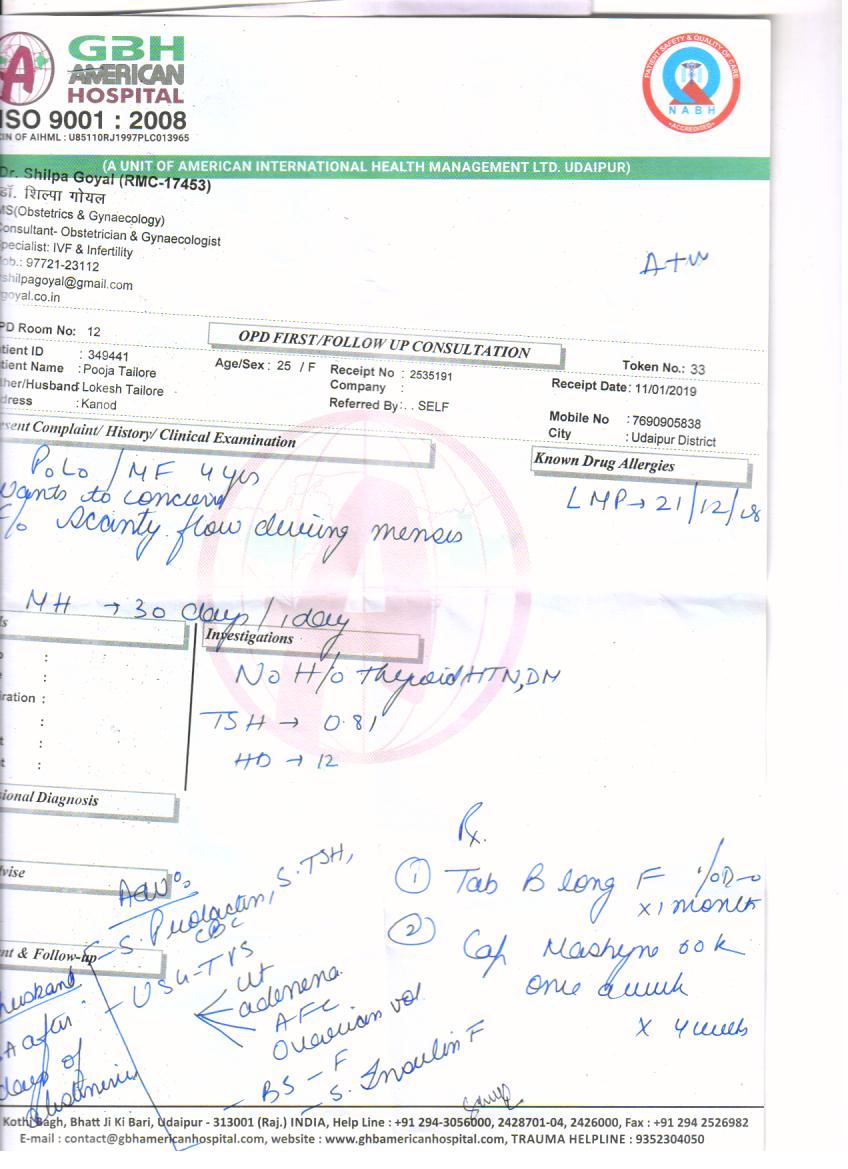 GBH
AMERICAN
HOSPITAL
ISO 9001 : 2008
CIN OF AIHML : U85110RJ1997PLC013965
PATIENT SAFETY & QUALITY OF CARE
NABH
ACCREDITED
(A UNIT OF AMERICAN INTERNATIONAL HEALTH MANAGEMENT LTD. UDAIPUR)
Dr. Shilpa Goyal (RMC-17453)
डॉ. शिल्पा गोयल
MS(Obstetrics & Gynaecology)
Consultant- Obstetrician & Gynaecologist
Specialist: IVF & Infertility
Mob.: 97721-23112
shilpagoyal@gmail.com
goyal.co.in
OPD Room No: 12
OPD FIRST/FOLLOW UP CONSULTATION
Token No.: 33
Patient ID : 349441
Age/Sex : 25 / F
Receipt No : 2535191
Receipt Date: 11/01/2019
Patient Name : Pooja Tailore
Company :
Father/Husband : Lokesh Tailore
Referred By : . . SELF
Mobile No : 7690905838
Address : Kanod
City : Udaipur District
Present Complaint/ History/ Clinical Examination
Known Drug Allergies
P0L0 / MF 4 yrs
LMP → 21/12/18
wants to concieve
c/o scanty flow during menses
MH → 30 days / 1 day
Investigations
No H/o Thyroid HTN, DM
TSH → 0.81
HB → 12
Provisional Diagnosis
Rx.
Advise
Adv:
① Tab B long F 1/OD
x 1 month
- S. Prolactin, S. TSH,
CBC
② Cap
once a week
x 4 weeks
Treatment & Follow-up
- USG-TVS
Ut
adenexa
AFC
Ovarian vol
- BS - F
- S. Insulin F
Husband
after
days of
abstinence
Kothi Bagh, Bhatt Ji Ki Bari, Udaipur - 313001 (Raj.) INDIA, Help Line : +91 294-3056000, 2428701-04, 2426000, Fax : +91 294 2526982
E-mail : contact@gbhamericanhospital.com, website : www.ghbamericanhospital.com, TRAUMA HELPLINE : 9352304050